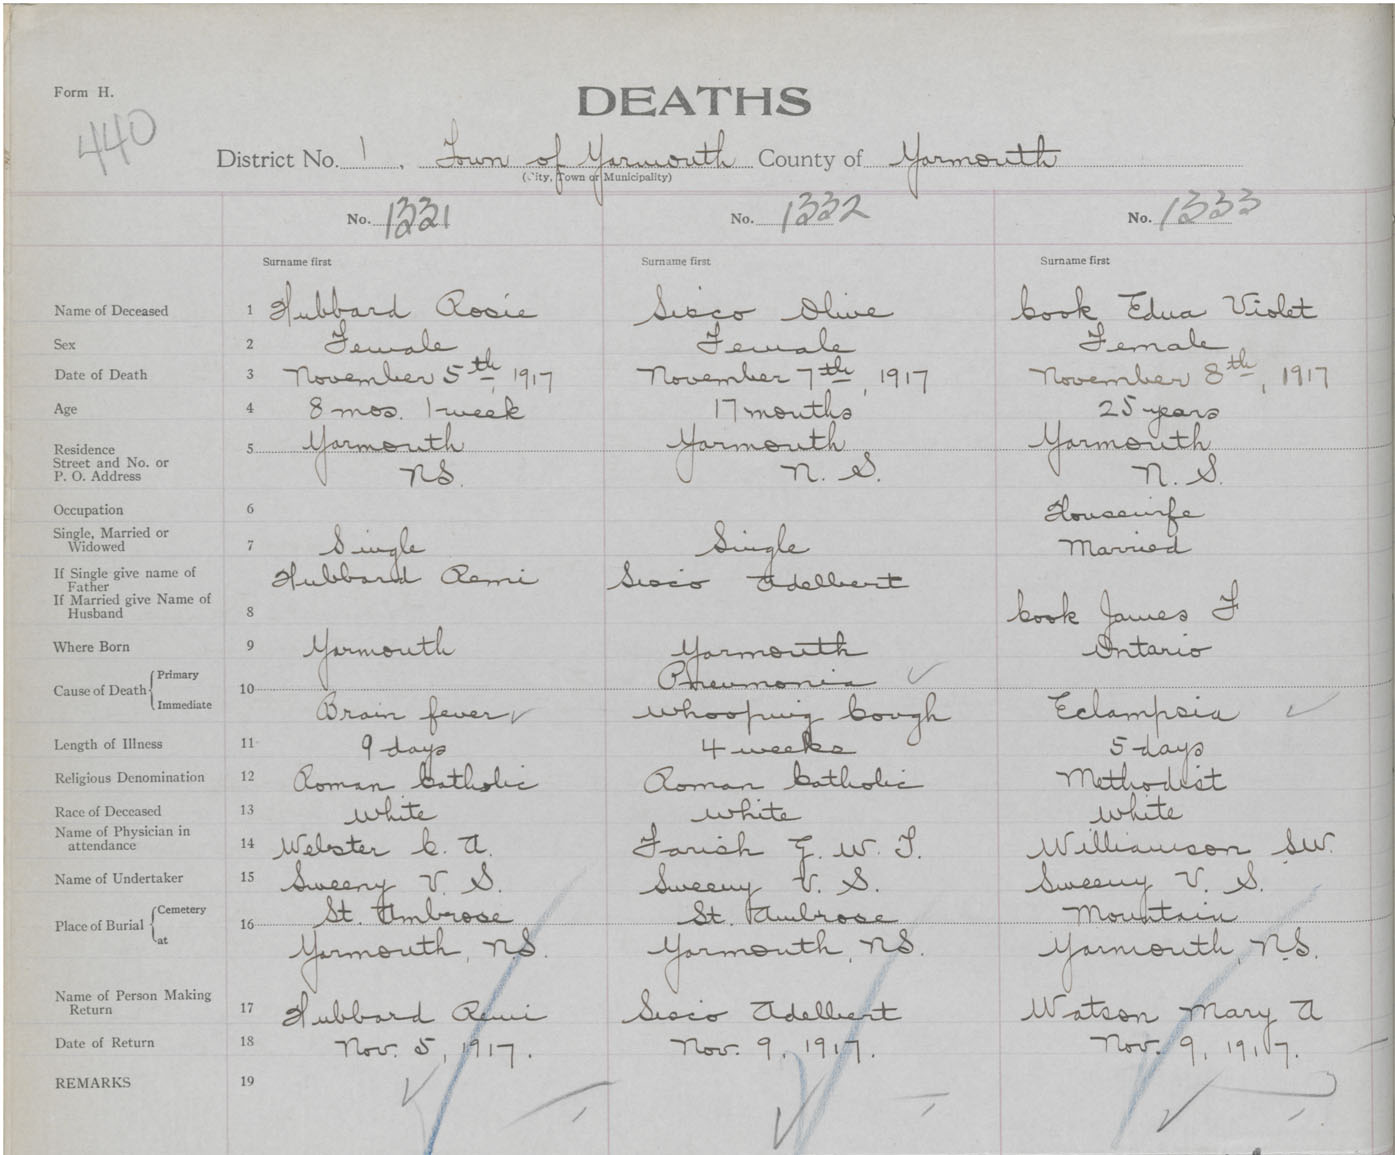 Form H.
DEATHS
440
District No. 1. Town of Yarmouth County of Yarmouth
(City, Town or Municipality)
No. 1331 No. 1332 No. 1333
Surname first Surname first Surname first
Name of Deceased 1 Hubbard Rosie Sisco Olive Cook Edna Violet
Sex 2 Female Female Female
Date of Death 3 November 5th, 1917 November 7th, 1917 November 8th, 1917
Age 4 8 mos. 1 week 17 months 25 years
Residence 5 Yarmouth Yarmouth Yarmouth
Street and No. or
P. O. Address NS. N. S. N. S.
Occupation 6 Housewife
Single, Married or
Widowed 7 Single Single Married
If Single give name of
Father Hubbard Remi Sisco Adelbert
If Married give Name of
Husband 8 Cook James F
Where Born 9 Yarmouth Yarmouth Ontario
Cause of Death Primary 10 Pneumonia
Immediate Brain fever Whooping Cough Eclampsia
Length of Illness 11 9 days 4 weeks 5 days
Religious Denomination 12 Roman Catholic Roman Catholic Methodist
Race of Deceased 13 White White White
Name of Physician in
attendance 14 Webster C. A. Farish G. W. T. Williamson S.W.
Name of Undertaker 15 Sweeny V. S. Sweeny V. S. Sweeny V. S.
Place of Burial Cemetery 16 St. Ambrose St. Ambrose Mountain
at Yarmouth, NS. Yarmouth, NS. Yarmouth, N.S.
Name of Person Making
Return 17 Hubbard Remi Sisco Adelbert Watson Mary A
Date of Return 18 Nov. 5, 1917. Nov. 9, 1917. Nov. 9, 1917.
REMARKS 19